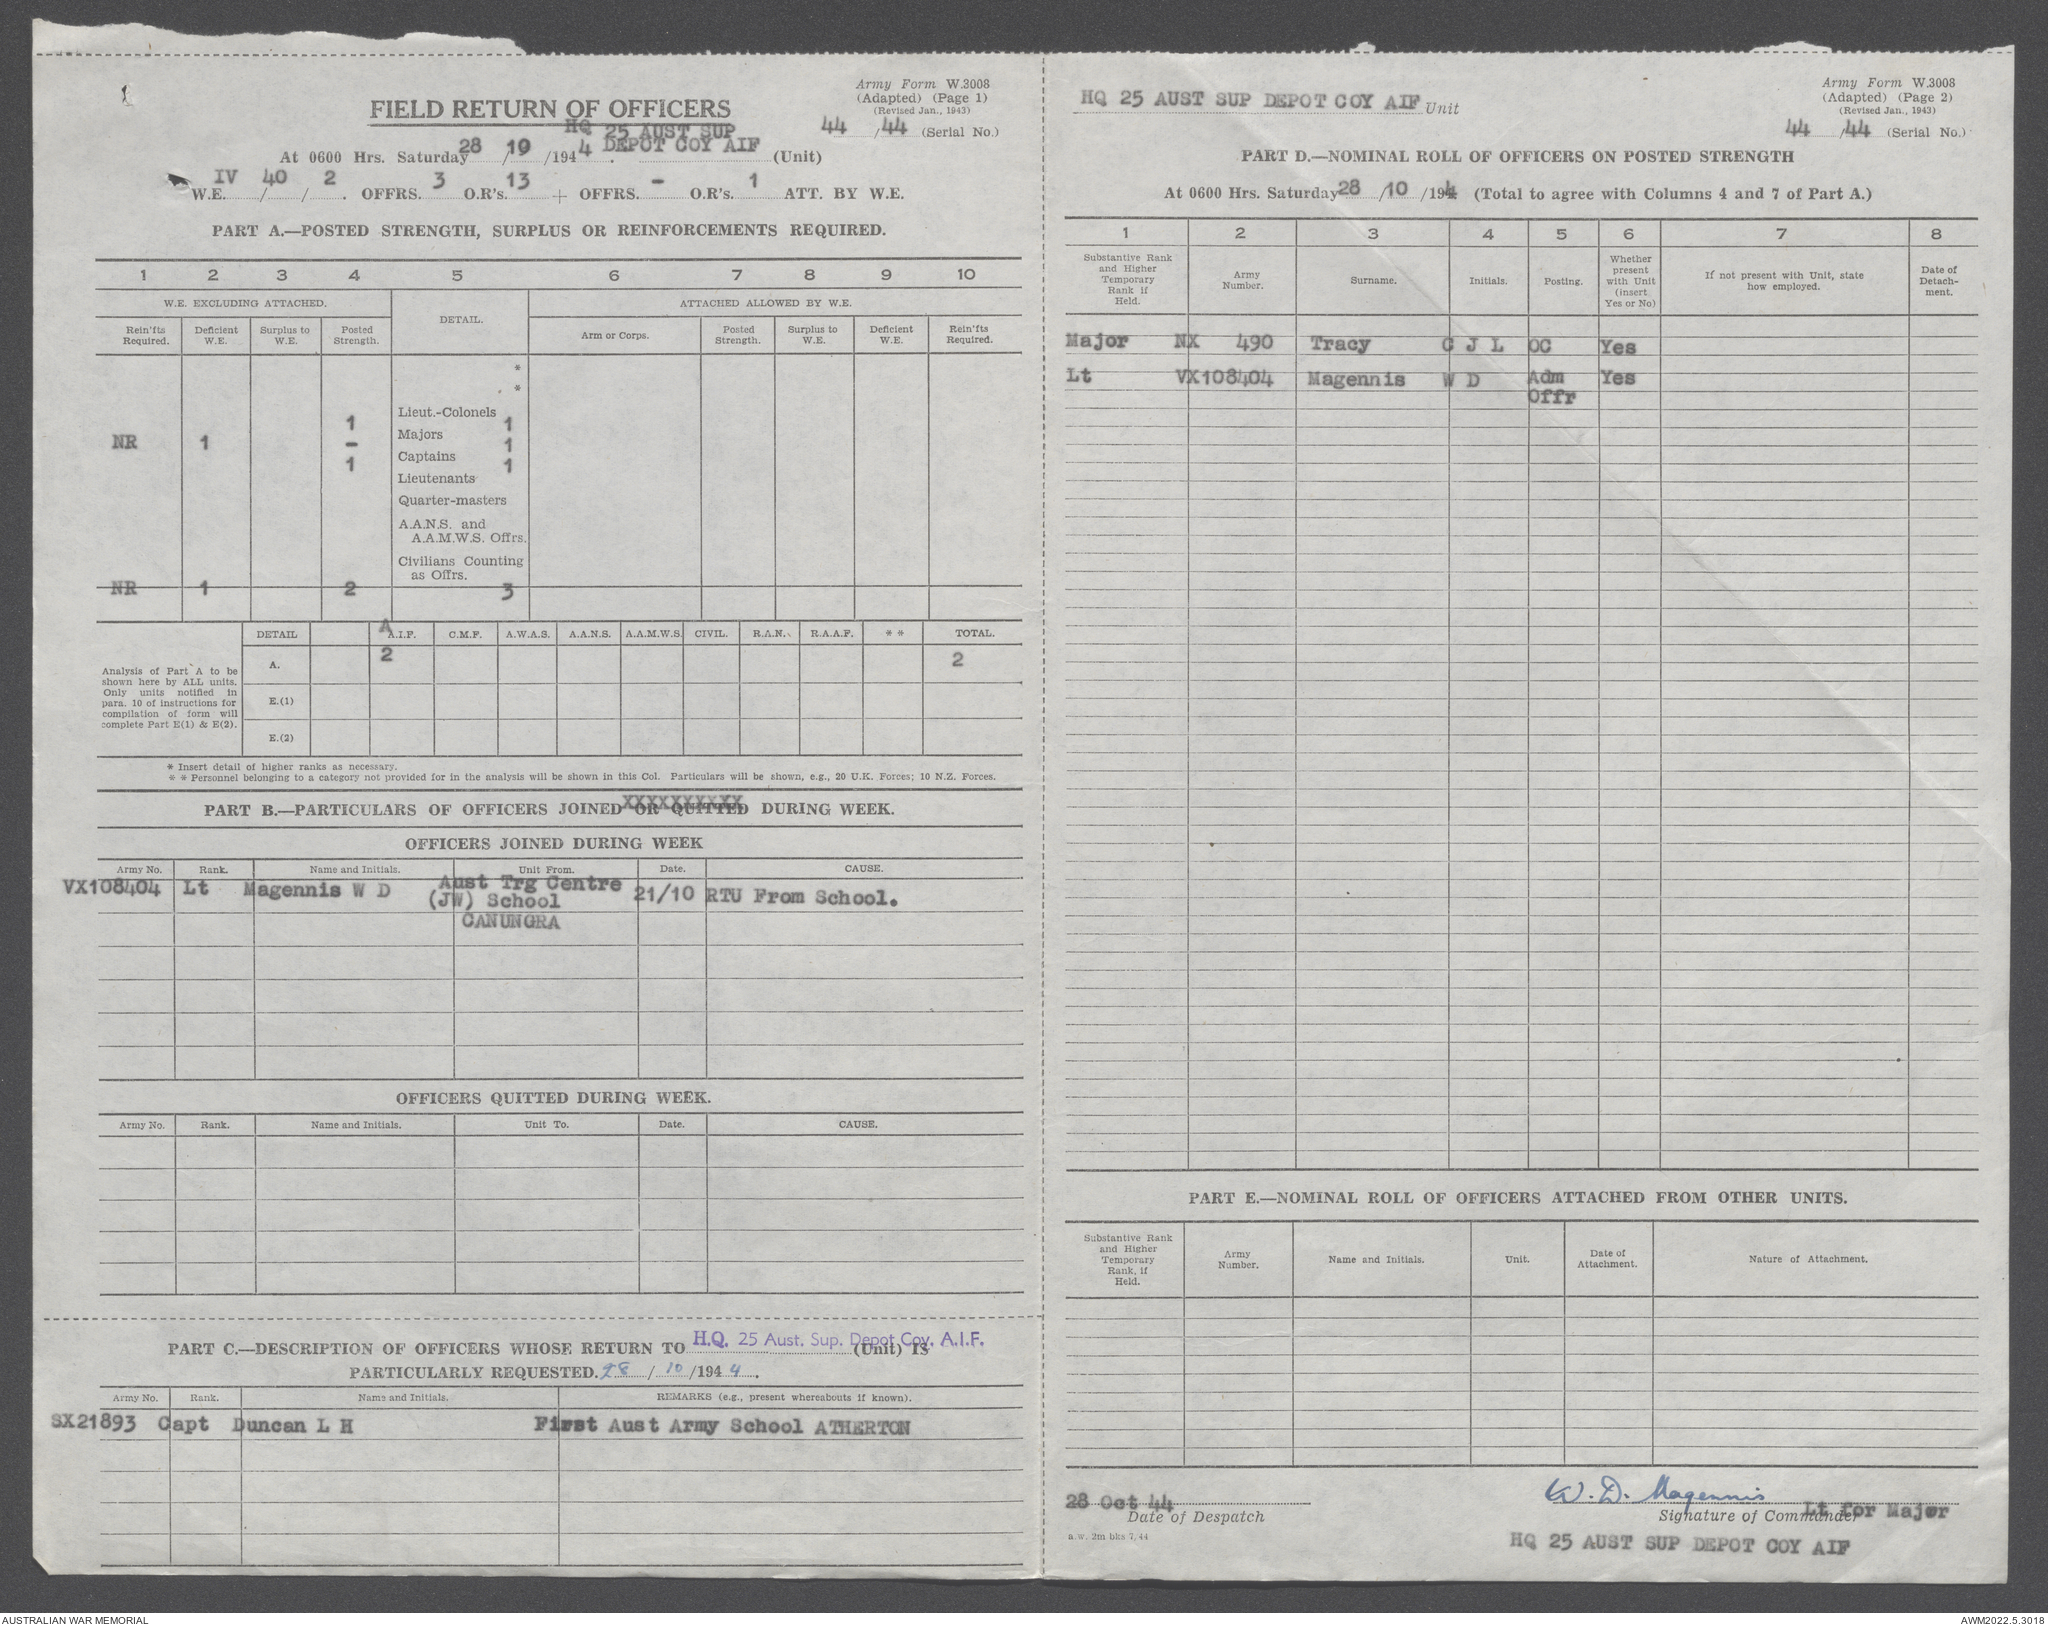 Army Form W.3008
(Adapted) (Page 1)
(Revised Jan., 1943)
FIELD RETURN OF OFFICERS
44/44 (Serial No.)
HQ 25 AUST SUP
DEPOT COY AIF
At 0600 Hrs. Saturday 28/10/1944. (Unit)
W.E. IV/40/2. OFFRS. 3 O.R's. 13 + OFFRS. - O.R's. 1 ATT. BY W.E.
PART A.—POSTED STRENGTH, SURPLUS OR REINFORCEMENTS REQUIRED.
1 2 3 4 5 6 7 8 9 10
W.E. EXCLUDING ATTACHED. DETAIL. ATTACHED ALLOWED BY W.E.
Rein'fts Required. Deficient W.E. Surplus to W.E. Posted Strength. Arm or Corps. Posted Strength. Surplus to W.E. Deficient W.E. Rein'fts Required.
*
*
Lieut.-Colonels
1 Majors 1
NR 1 - Captains 1
1 Lieutenants 1
Quarter-masters
A.A.N.S. and
A.A.M.W.S. Offrs.
Civilians Counting
as Offrs.
NR 1 2 3
DETAIL A.I.F. C.M.F. A.W.A.S. A.A.N.S. A.A.M.W.S. CIVIL. R.A.N. R.A.A.F. * * TOTAL.
A. 2 2
E.(1)
E.(2)
Analysis of Part A to be
shown here by ALL units.
Only units notified in
para. 10 of instructions for
compilation of form will
complete Part E(1) & E(2).
* Insert detail of higher ranks as necessary.
* * Personnel belonging to a category not provided for in the analysis will be shown in this Col. Particulars will be shown, e.g., 20 U.K. Forces; 10 N.Z. Forces.
PART B.—PARTICULARS OF OFFICERS JOINED OR QUITTED DURING WEEK.
OFFICERS JOINED DURING WEEK
Army No. Rank. Name and Initials. Unit From. Date. CAUSE.
VX108404 Lt Magennis W D Aust Trg Centre
(JW) School 21/10 RTU From School.
CANUNGRA
OFFICERS QUITTED DURING WEEK.
Army No. Rank. Name and Initials. Unit To. Date. CAUSE.
PART C.—DESCRIPTION OF OFFICERS WHOSE RETURN TO H.Q. 25 Aust. Sup. Depot Coy. A.I.F. (Unit) IS
PARTICULARLY REQUESTED. 28/10/1944.
Army No. Rank. Name and Initials. REMARKS (e.g., present whereabouts if known).
SX21893 Capt Duncan L H First Aust Army School ATHERTON
HQ 25 AUST SUP DEPOT COY AIF Unit
Army Form W.3008
(Adapted) (Page 2)
(Revised Jan., 1943)
44/44 (Serial No.)
PART D.—NOMINAL ROLL OF OFFICERS ON POSTED STRENGTH
At 0600 Hrs. Saturday 28/10/1944 (Total to agree with Columns 4 and 7 of Part A.)
1 2 3 4 5 6 7 8
Substantive Rank and Higher Temporary Rank if Held. Army Number. Surname. Initials. Posting. Whether present with Unit (insert Yes or No) If not present with Unit, state how employed. Date of Detachment.
Major NX 490 Tracy C J L OC Yes
Lt VX108404 Magennis W D Adm Yes
Offr
PART E.—NOMINAL ROLL OF OFFICERS ATTACHED FROM OTHER UNITS.
Substantive Rank and Higher Temporary Rank, if Held. Army Number. Name and Initials. Unit. Date of Attachment. Nature of Attachment.
28 Oct 44
Date of Despatch
a.w. 2m bks 7.44
W. D. Magennis
Lt for Major
Signature of Commander
HQ 25 AUST SUP DEPOT COY AIF
AUSTRALIAN WAR MEMORIAL
AWM2022.5.3018